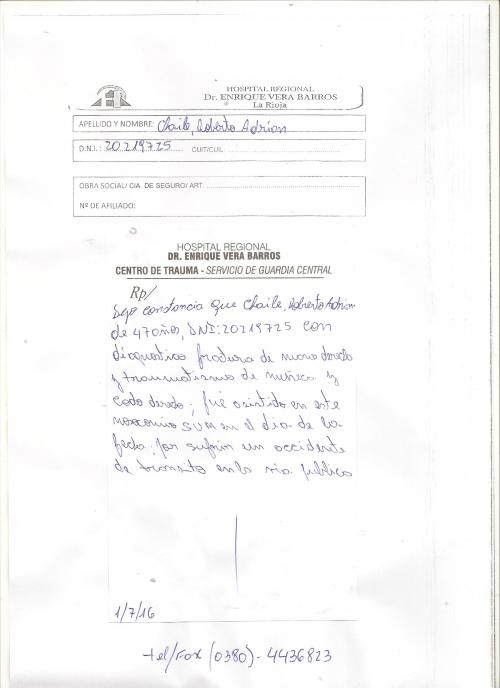 HOSPITAL REGIONAL
Dr. ENRIQUE VERA BARROS
La Rioja
APELLIDO Y NOMBRE: Chaile, Roberto Adrian
D.N.I.: 20219725 CUIT/CUIL:
OBRA SOCIAL/ CIA. DE SEGURO/ ART:
Nº DE AFILIADO:
HOSPITAL REGIONAL
DR. ENRIQUE VERA BARROS
CENTRO DE TRAUMA - SERVICIO DE GUARDIA CENTRAL
Rp/
Dejo constancia que Chaile, Roberto Adrian
de 47 años, DNI: 20219725 con
diagnostico fractura de mano derecha
y traumatismo de muñeca y
codo derecho; fué asistido en este
nosocomio en el dia de la
fecha, por sufrir un accidente
de transito en la via publica
1/7/16
tel/Fax (0380)- 4436823